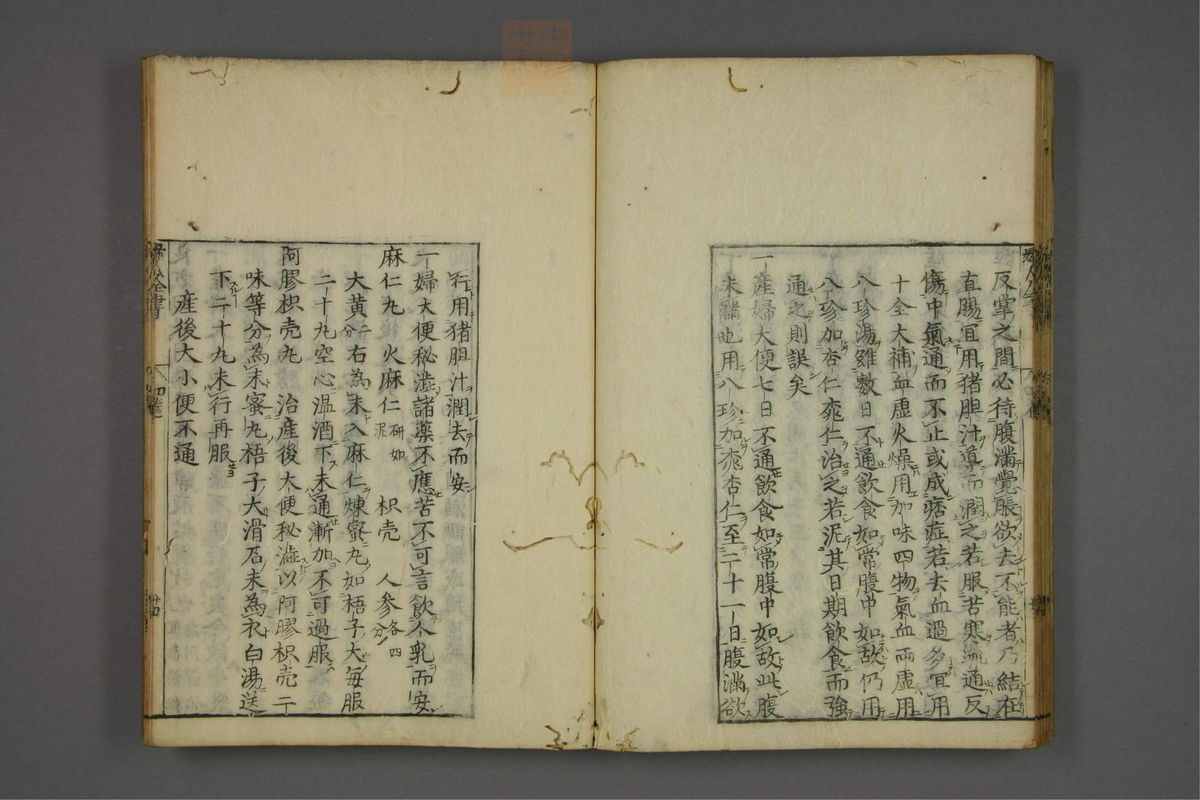 反掌之間必待腹滿覺脹欲去不能者乃結在
直腸宜用猪胆汁道而潤之若服苦寒疏通反
傷中氣通而不止或成痞症若去血過多宜用
十全大補血虛火燥用加味四物氣血兩虛用
八珍湯雖數日不通飲食如常腹中如故仍用
八珍加杏仁桃仁治之若泥其日期飲食而強
通之則誤矣
一産婦大便七日不通飲食如常腹中如故此腹
未滿也用八珍加桃杏仁至二十一日腹滿欲
行用猪胆汁潤去而安
一婦大便秘澁諸藥不應苦不可言飲人乳而安
麻仁丸 火麻仁研如泥 枳壳 人參各四分
大黃二分 右為末入麻仁煉蜜丸如梧子大每服
二十丸空心温酒下未通漸加不可過服
阿膠枳壳丸 治産後大便秘澁以阿膠枳壳二
味等分為末蜜丸梧子大滑石末為衣白湯送
下二十丸未行再服
産後大小便不通
婦人全書